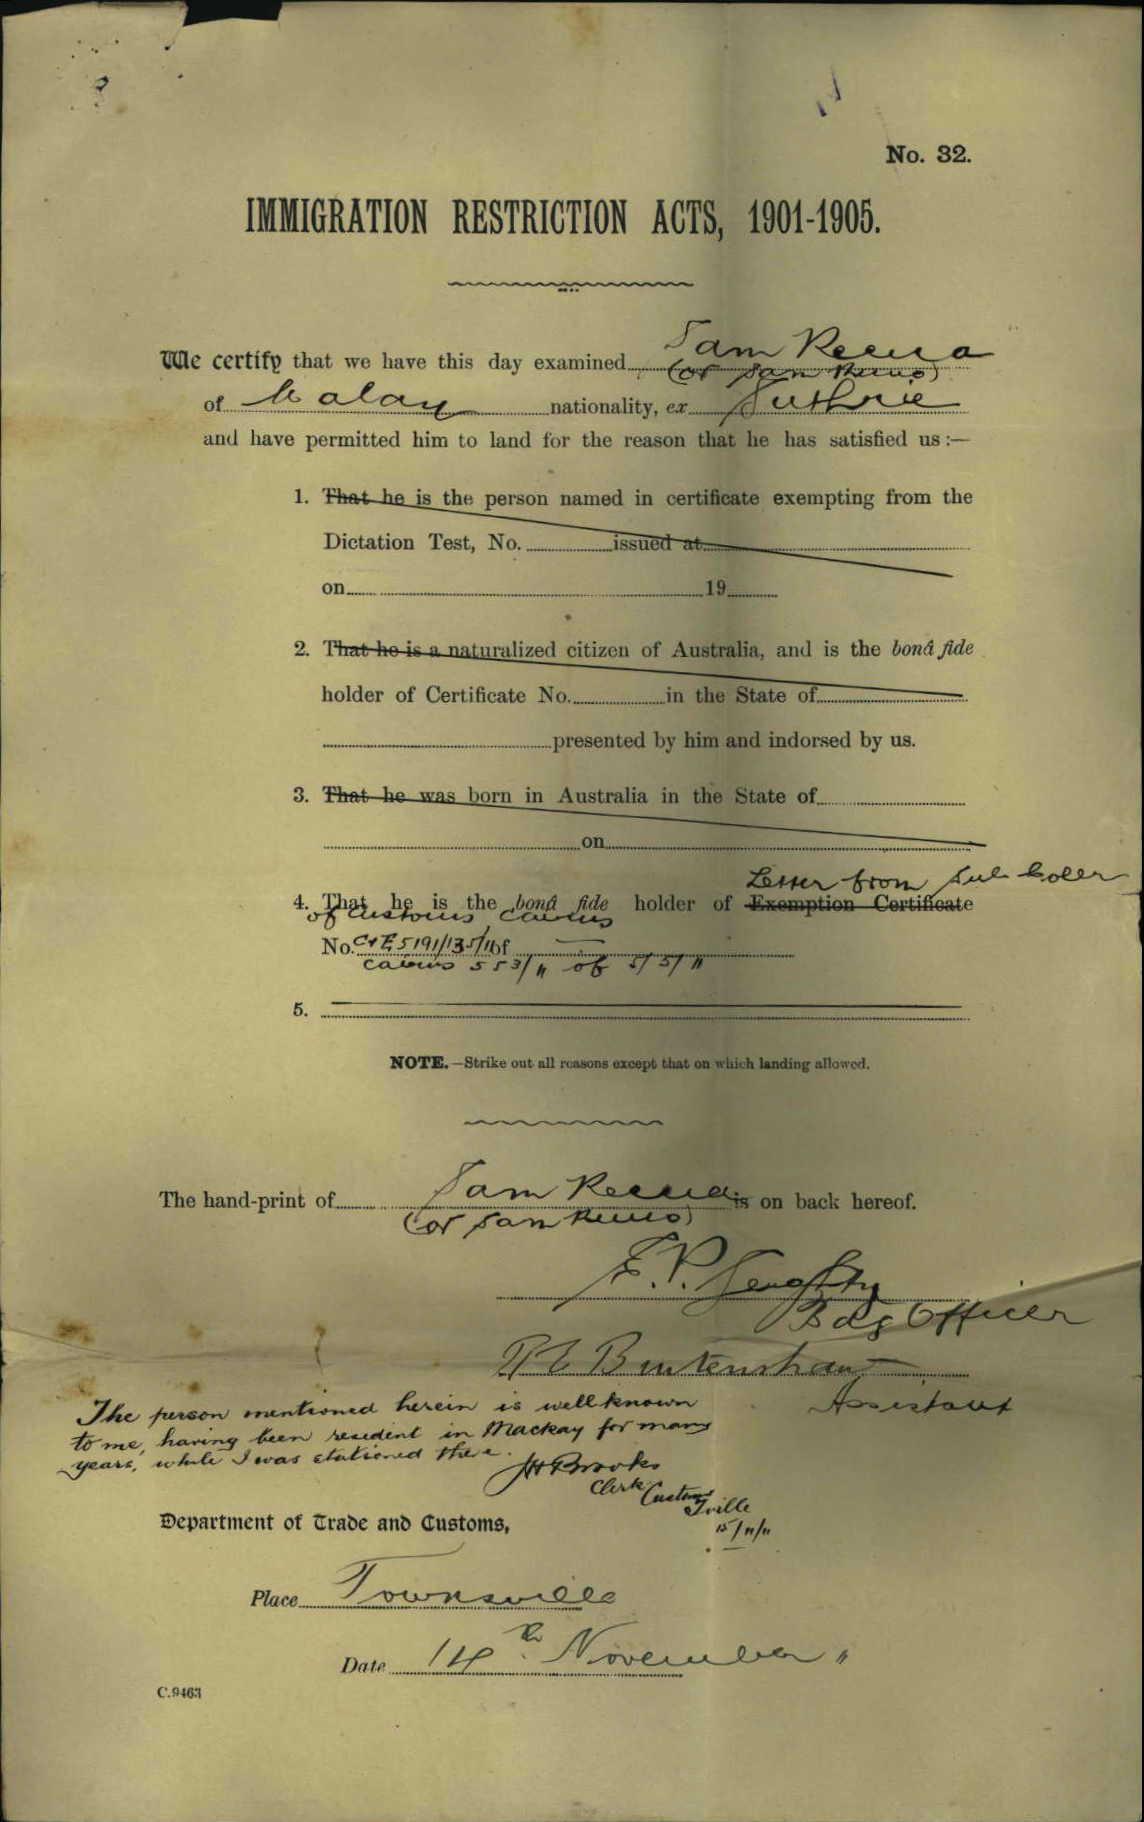 No. 32.
IMMIGRATION RESTRICTION ACTS, 1901-1905.
We certify that we have this day examined Sam Reena
(or Sam
of Malay nationality, ex Guthrie
and have permitted him to land for the reason that he has satisfied us :—
1. That he is the person named in certificate exempting from the
Dictation Test, No. issued at
on 19
2. That he is a naturalized citizen of Australia, and is the bonâ fide
holder of Certificate No. in the State of
presented by him and indorsed by us.
3. That he was born in Australia in the State of
on
Letter from Sub Coller
4. That he is the bonâ fide holder of Exemption Certificate
of Customs Cairns
No. C+E 5191/135/11 of
Cairns 553/11 of 5/5/11
5.
NOTE.—Strike out all reasons except that on which landing allowed.
The hand-print of Sam Reena is on back hereof.
(or Sam
E. P.
Bdg Officer
Assistant
The person mentioned herein is well known
to me, having been resident in Mackay for many
years, while I was stationed there.
JH Brooks
Clerk Customs
Tville
15/11/11
Department of Trade and Customs,
Place Townsville
Date 14th November "
C.9463